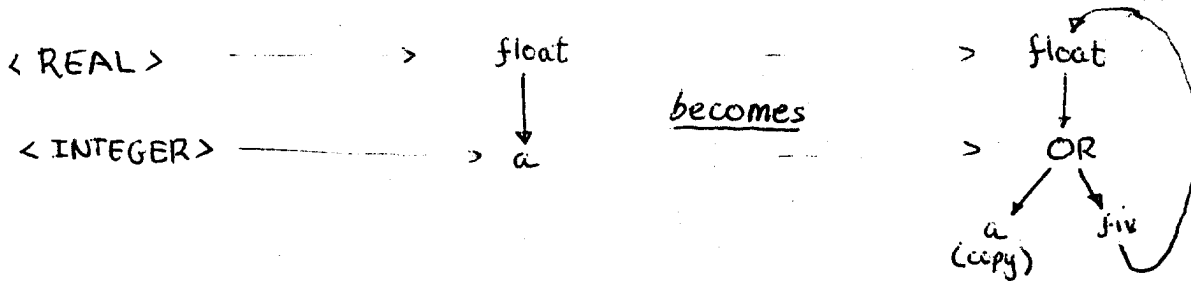 < REAL > - - - - - > float - > float
becomes
< INTEGER > ———— > a - - > OR
a
(copy)